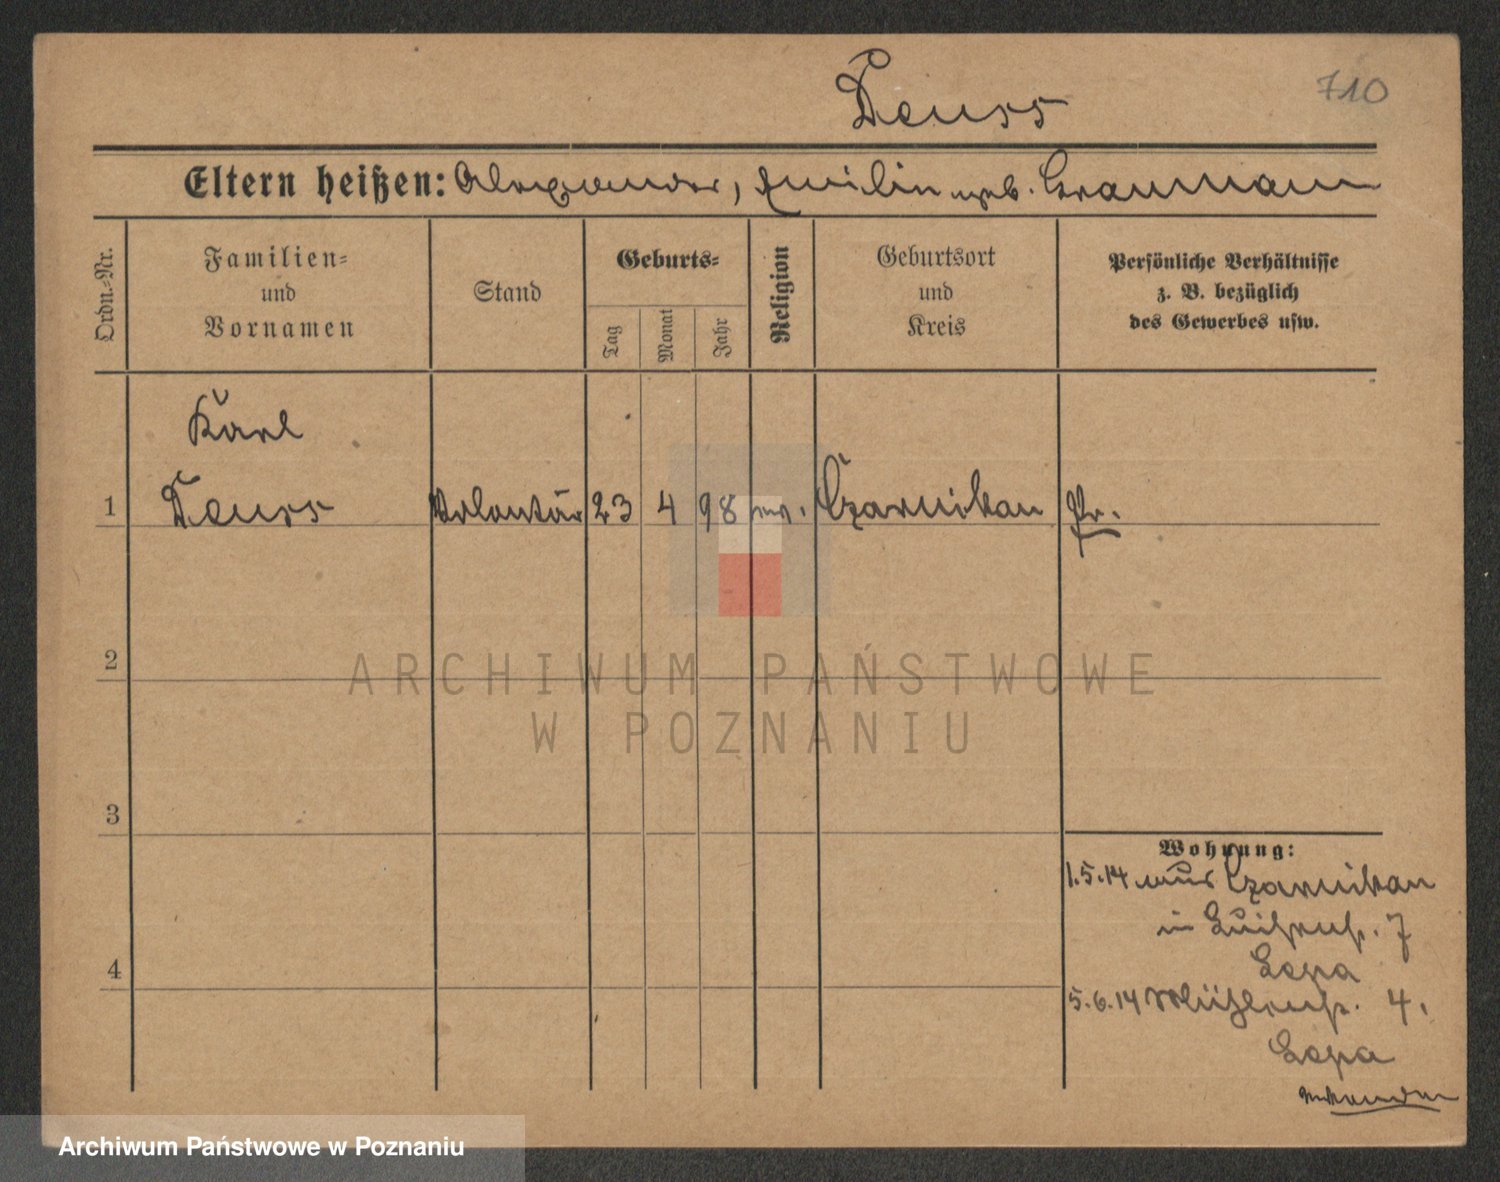 710
Deuss
Eltern heißen: Alexander, Emilie geb. Graumann
Ordn.-Nr.
Familien-
und
Vornamen
Stand
Geburts-
Tag
Monat
Jahr
Religion
Geburtsort
und
Kreis
Persönliche Verhältnisse
z. B. bezüglich
des Gewerbes usw.
Karl
1 Deuss Volontär 23 4 98 ev. Czarnikau Pr.
2
3
4
Wohnung:
1.5.14 aus Czarnikau
in Luisenstr. 7
5.6.14 Mühlenstr. 4.
ARCHIWUM PAŃSTWOWE
W POZNANIU
Archiwum Państwowe w Poznaniu